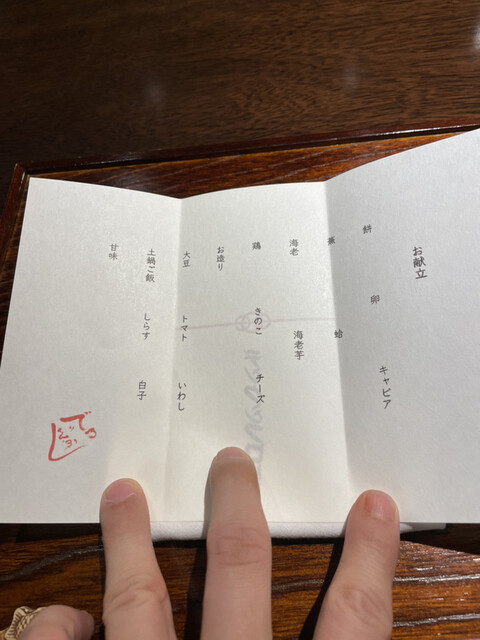 お献立
餅 卵 キャビア
蕪 蛤
海老 海老芋
鶏 きのこ チーズ
お造り
大豆 トマト いわし
土鍋ご飯 しらす 白子
甘味